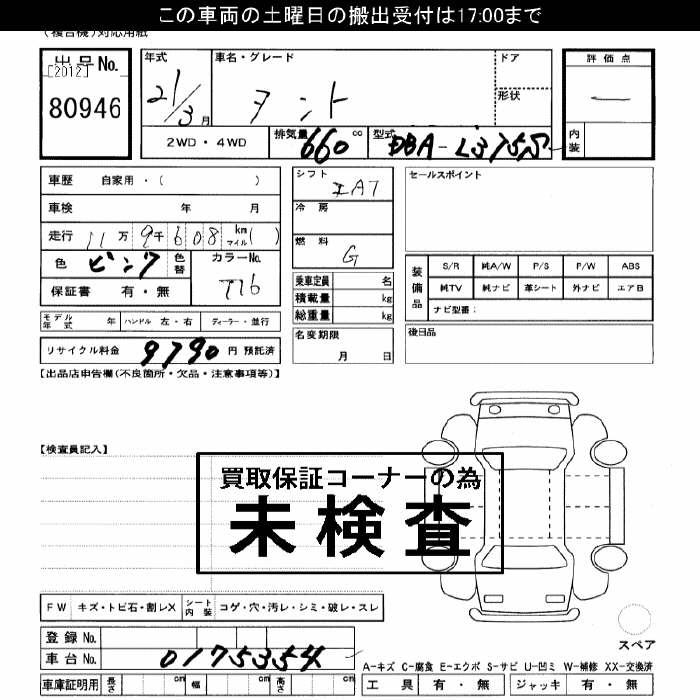 この車両の土曜日の搬出受付は17:00まで
(複合機)対応用紙
出品No.
[2012]
80946
年式
21/3月
車名・グレード
タント
ドア
形状
評価点
—
内装
2WD・4WD
排気量
660cc
型式
DBA-L375S
車歴 自家用・( )
車検 年 月
走行 11万9千608 km マイル( )
色 ピンク
色替
カラーNo.
T16
保証書 有・無
シフト
IAT
冷房
燃料
G
乗車定員 名
積載量 kg
総重量 kg
名変期限
月 日
セールスポイント
装備品
S/R 純A/W P/S P/W ABS
純TV 純ナビ 革シート 外ナビ エアB
ナビ型番:
後日品
モデル年式 年 ハンドル 左・右 ディーラー・並行
リサイクル料金 9790 円 預託済
【出品店申告欄(不良箇所・欠品・注意事項等)】
【検査員記入】
買取保証コーナーの為
未検査
FW キズ・トビ石・割レX シート内装 コゲ・穴・汚レ・シミ・破レ・スレ
スペア
登録No.
車台No. 0175354
A-キズ C-腐食 E-エクボ S-サビ U-凹ミ W-補修 XX-交換済
車庫証明用 長さ cm 幅 cm 高さ cm
工具 有・無 ジャッキ 有・無